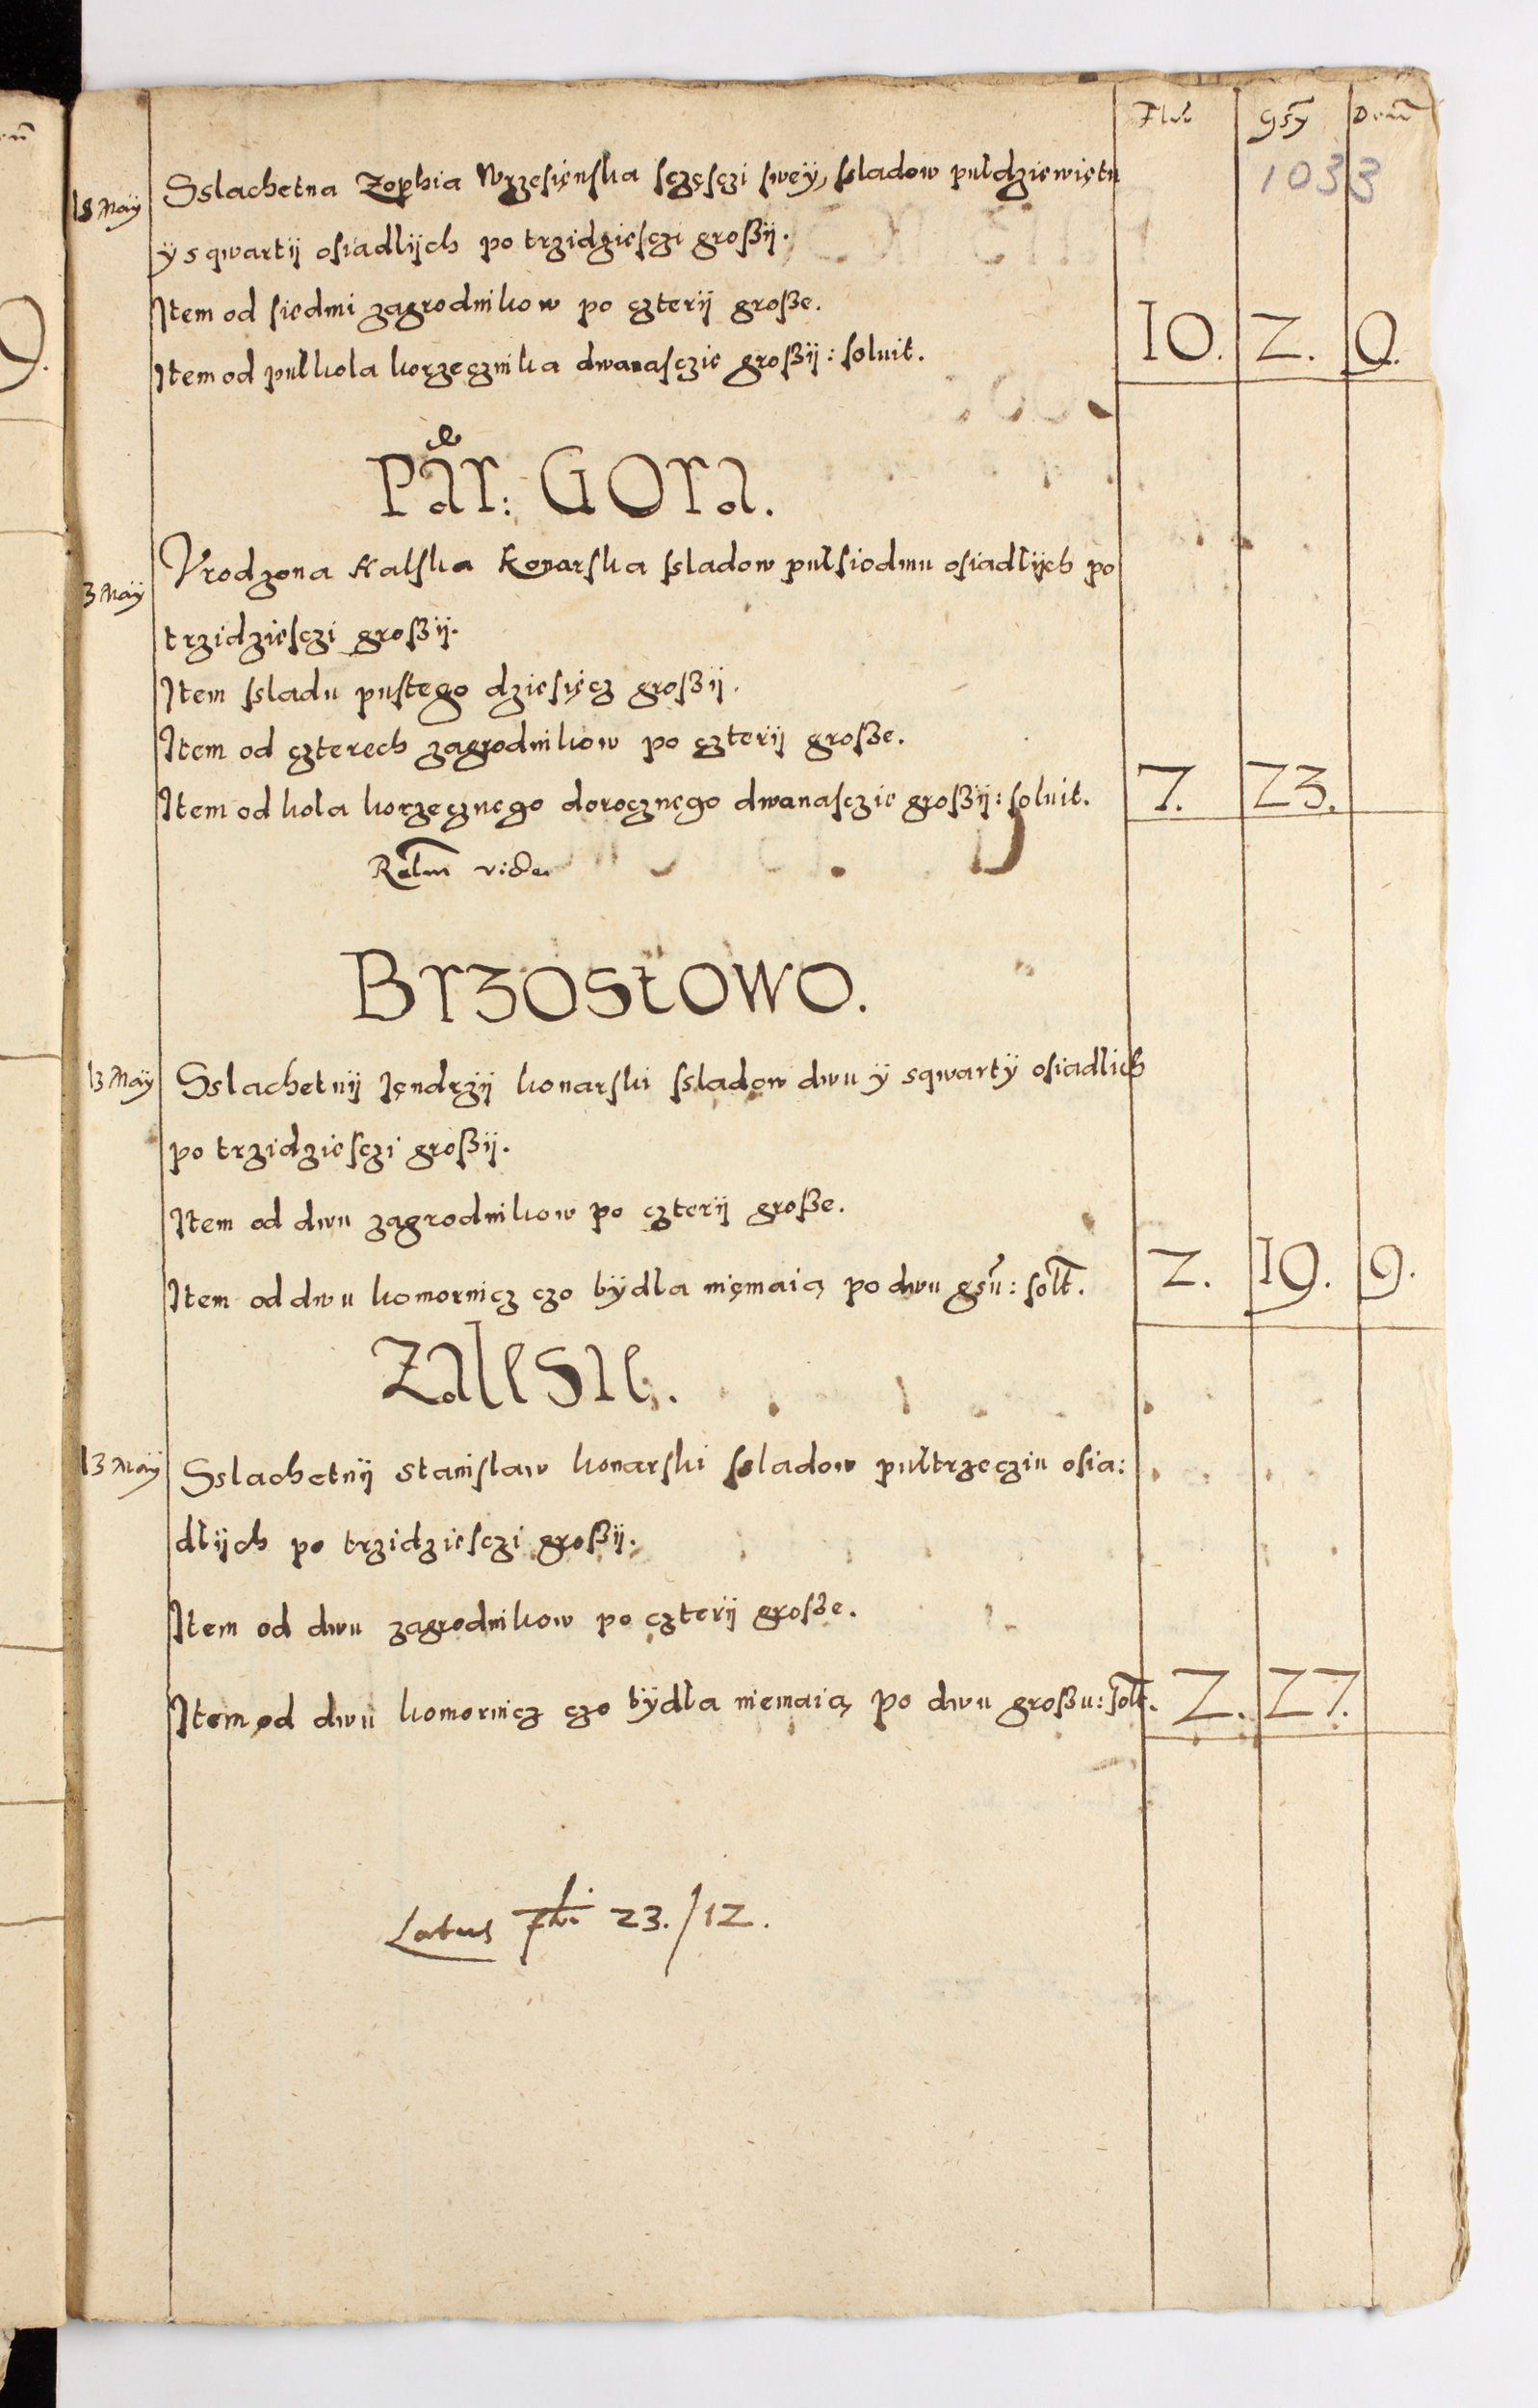 Flor Gsy Denn
1033
18 Maÿ Sslachetna Zophia Wrzesięnska sczęsczi sweÿ, sladow puldziewiętu
ÿ sqwartij osiadlÿch po trzidziesczi großÿ.
Item od siedmi zagrodnikow po czterÿ große.
Item od pułkola korzęcznika dwanasczie großÿ: soluit. 10. 2. 9.
Par: Gora.
3 Maÿ Vrodzona Kalska Konarska sladow pulsiodmu osiadłÿch po
trzidziesczi großÿ.
Item sladu pustego dziesięcz großÿ.
Item od czterech zagrodnikow po czterÿ große.
Item od kola korzecznego dorocznego dwanasczie großÿ: soluit. 7. 23.
Brzostowo.
13 Maÿ Sslachetnÿ Jędrzÿ konarski sladow dwu ÿ sqwartÿ osiadlich
po trzidziesczi großÿ.
Item od dwu zagrodnikow po czterÿ große.
Item od dwu komornicz czo bÿdła niemaią po dwu gsu: solt. 2. 19. 9.
Zalesie.
13 Maÿ Sslachetnÿ Stanisław konarski sladow pułtrzecziu osia:
dłÿch po trzidziesczi großÿ.
Item od dwu zagrodnikow po czterÿ große.
Item od dwu komornicz czo bÿdła niemaią po dwu großu: solt. 2. 27.
Latus fl 23./12.